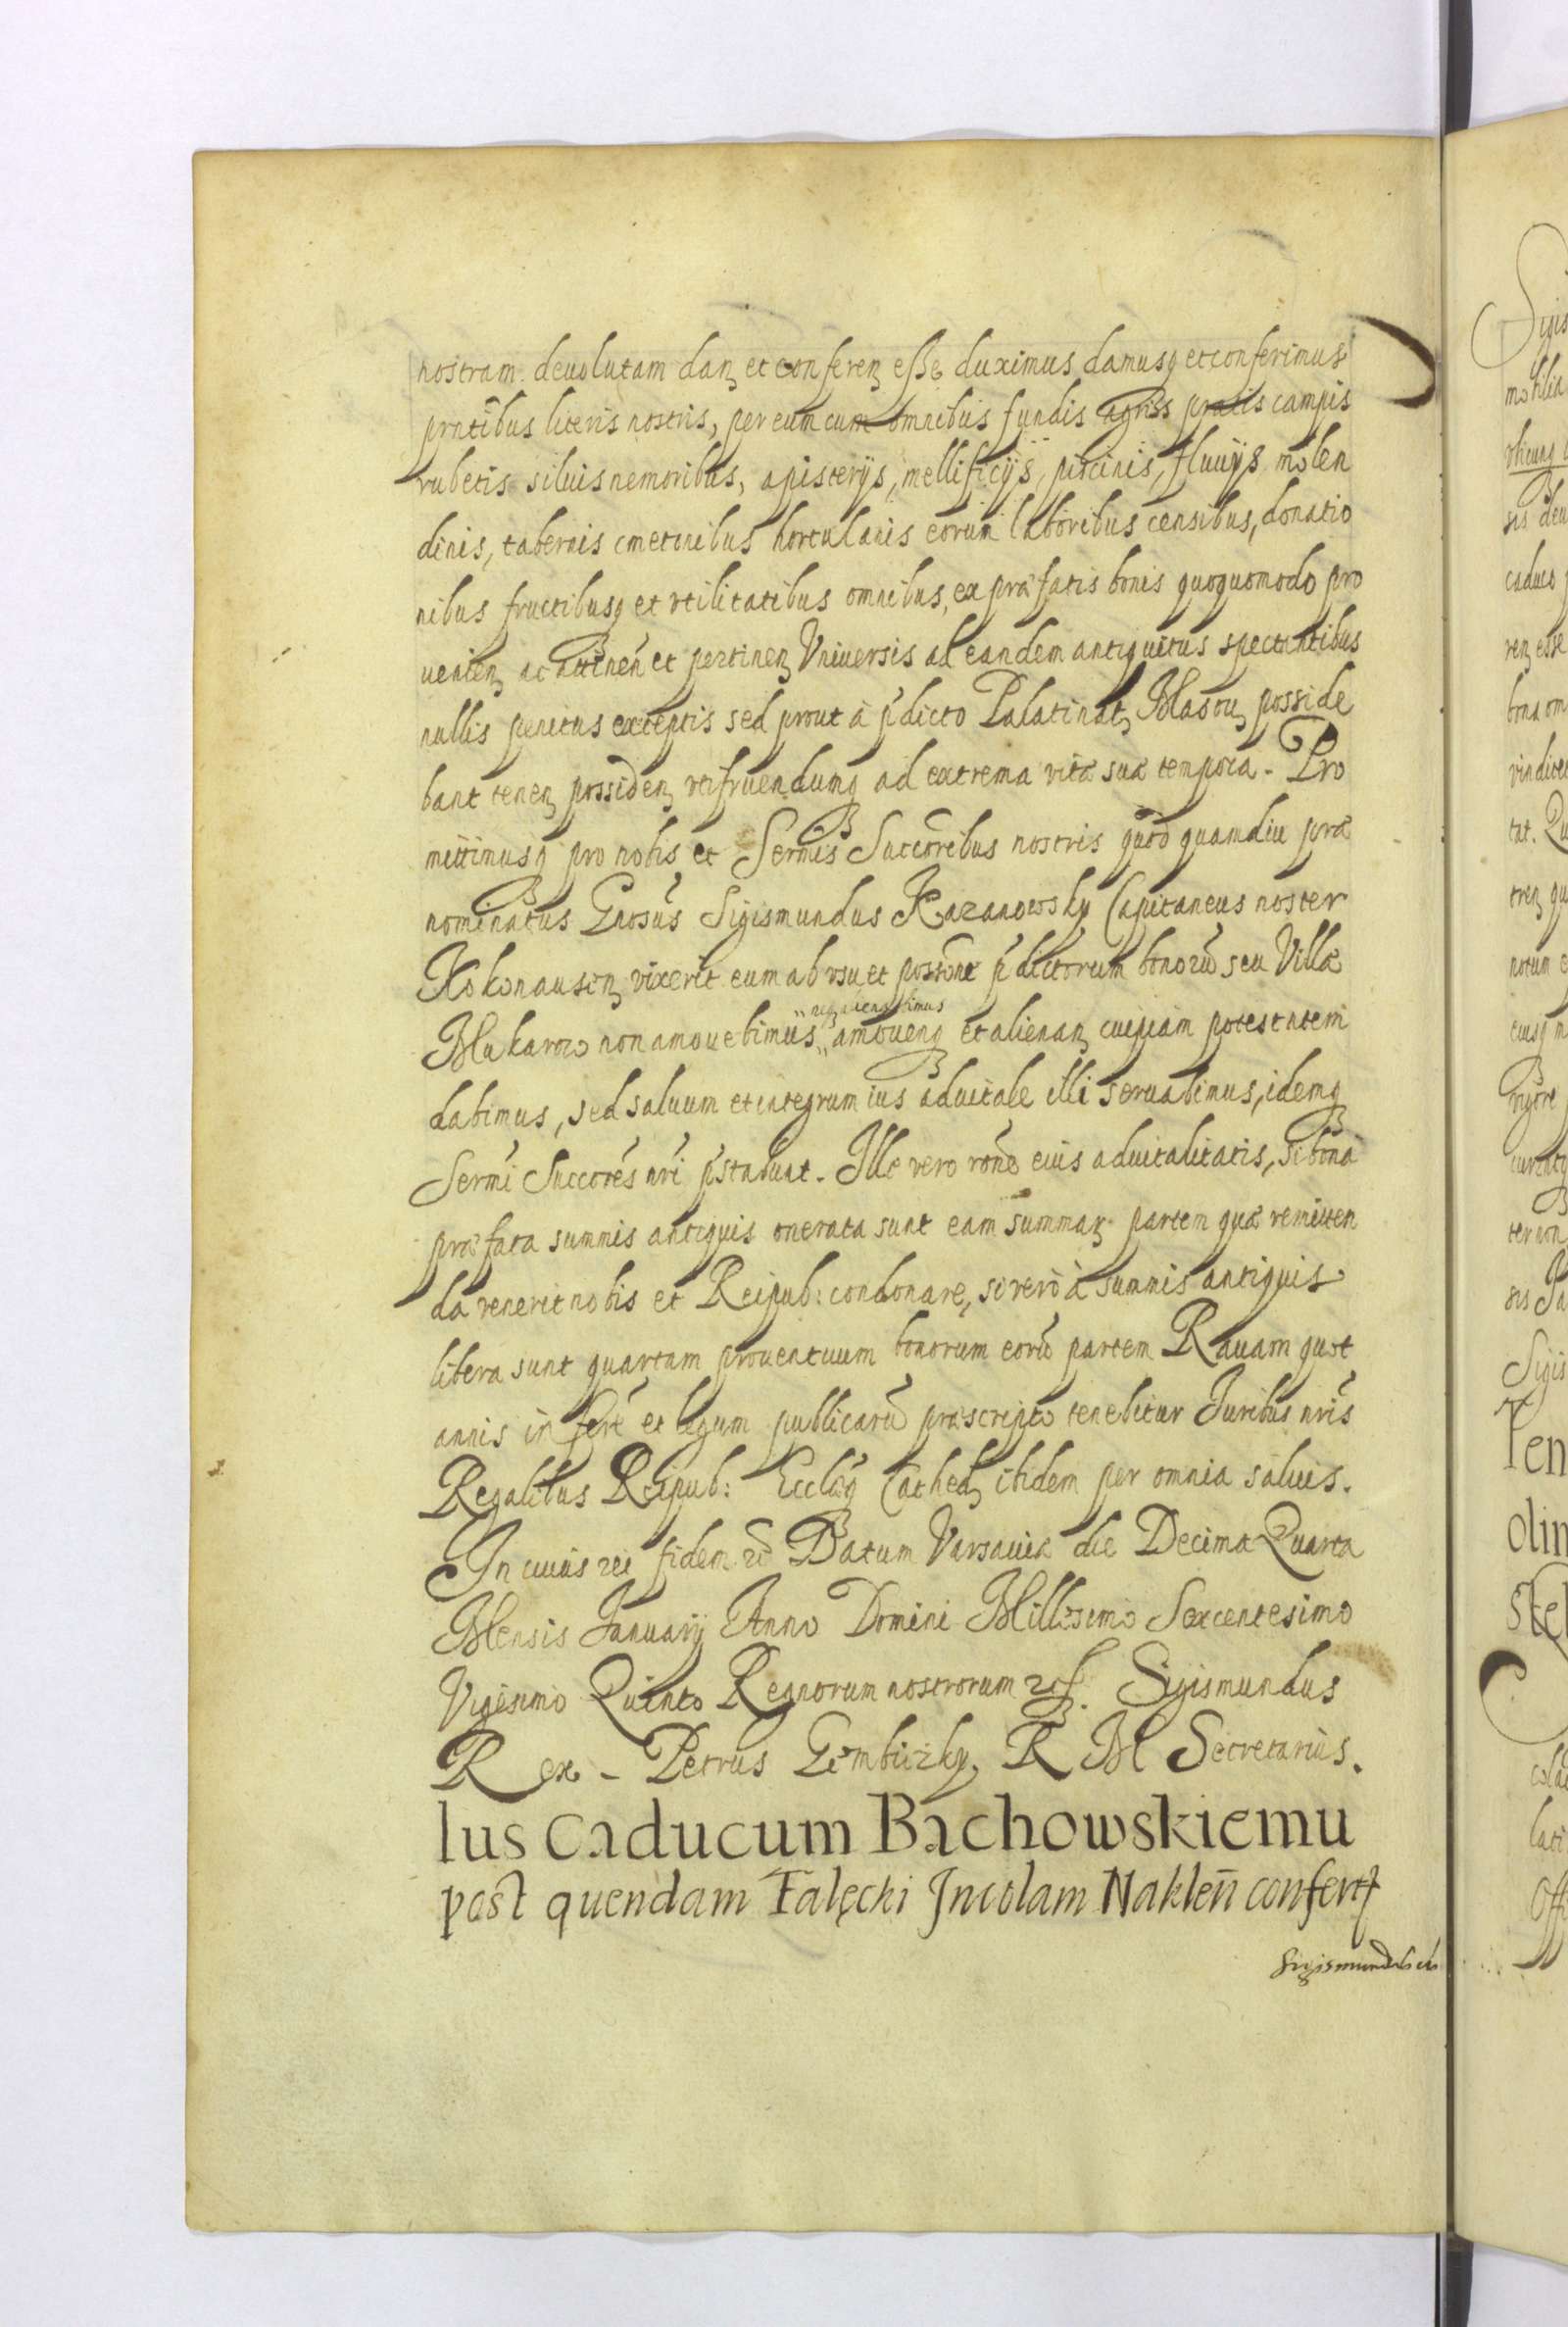 nostram devolutam danꝫ et conferenꝫ esse duximus damusqꝫ et conferimus
pñtibus literis nostris, per eum cum omnibus fundis agris pratis campis
rubetis siluis nemoribus, apisterijs, mellificijs, piscinis, fluuijs molen
dinis, tabernis cmetonibus hortulanis eorum laboribus censibus, donatio
nibus fructibusqꝫ et vtilitatibus omnibus, ex præfatis bonis quoquomodo pro
uenienꝫ ac attineñ et pertinenꝫ Vniuersis ad eandem antiquitus spectantibus
nullis penitus exceptis sed prout à p̃dicto Palatinatꝫ Masouꝫ posside
bant tenenꝫ possidenꝫ vtifruendumqꝫ ad extrema vitæ suæ tempora. Pro
mittimusqꝫ pro nobis et Sermis Succoribus nostris quod quamdiu præ
nominatus Gnosus Sigismundus Kazanowsky Capitaneus noster
Kokonausenꝫ vixerit eum ab vsu et possone p̃dictorum bonorũ seu Villæ
Makarow non amouebimus amouendꝫ et alienanꝫ cuipiam potestatem
dabimus, sed saluum et integrum ius aduitale illi seruabimus, idemqꝫ
Sermi Succores nri p̃stabunt. Ille vero rone eius aduitalitatis, si bona
præfata summis antiquis onerata sunt eam summaꝝ partem quæ remitten
da venerit nobis et Reipub: condonare, si verò à summis antiquis
libera sunt quartam prouentuum bonorum eorũ partem Rauam quot
annis inferre et legum publicarũ præscripto tenebitur Iuribus nris
Regalibus Reipub: Ecclæqꝫ Cathedꝫ ibidem per omnia saluis.
In cuius rei fidem etc̃ Datum Varsauiæ die Decima Quarta
Mensis Ianuarij Anno Domini Millesimo Sexcentesimo
Vigesimo Quinto Regnorum nostrorum etc. Sigismundus
Rex - Petrus Gembiczky R M Secretarius.
Ius Caducum Bachowskiemu
post quendam Falęcki Incolam Nakleñ confert
Sigismundus